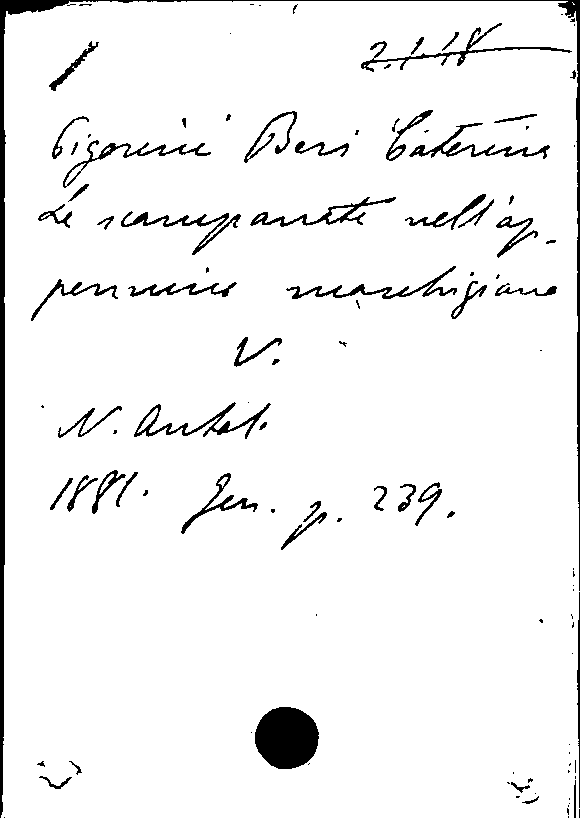 2.1.18
Pigorini Beri Caterina
Le scampanate nell'ap-
pennino marchigiano
V.
N. Antol.
1881. Gen. p. 239.